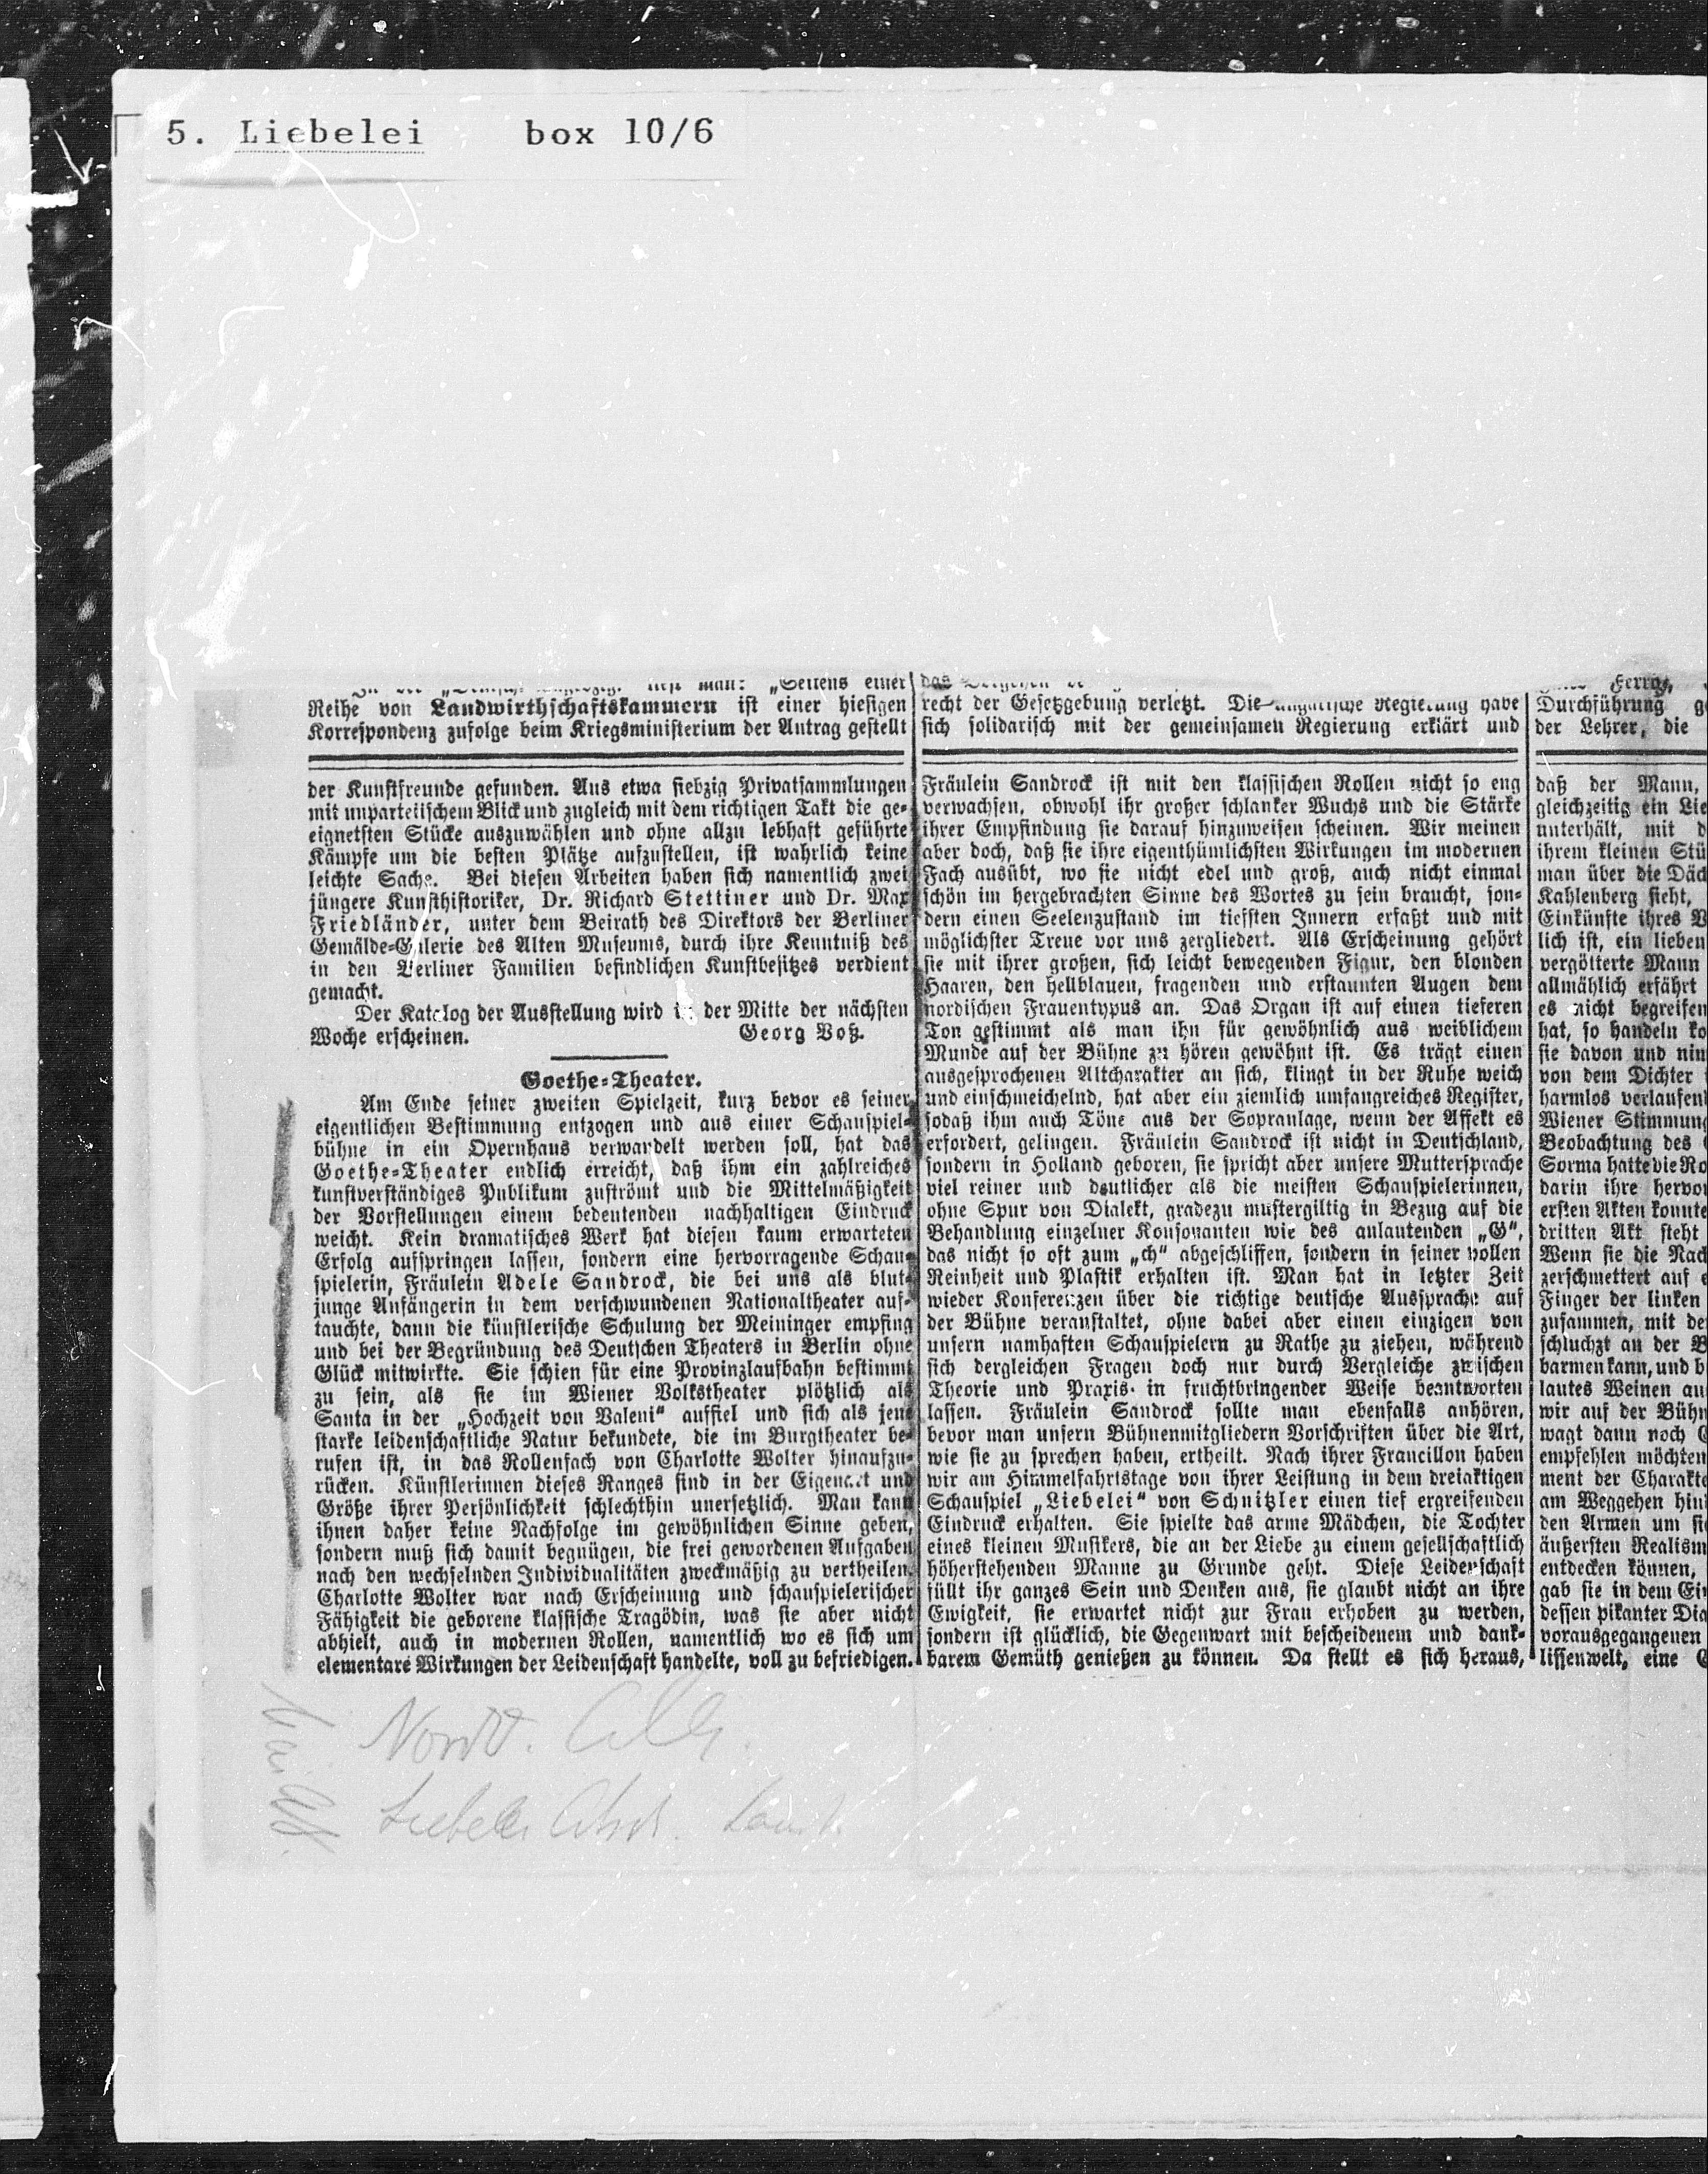 5. Liebelei box 10/6
lieſt man: „Seitens einer
Reihe von Landwirthſchaftskammern iſt einer hieſigen
Korreſpondenz zufolge beim Kriegsminiſterium der Antrag geſtellt
der Kunſtfreunde gefunden. Aus etwa ſiebzig Privatſammlungen
mit unparteiiſchem Blick und zugleich mit dem richtigen Takt die ge-
eignetſten Stücke auszuwählen und ohne allzu lebhaft geführte
Kämpfe um die beſten Plätze aufzuſtellen, iſt wahrlich keine
leichte Sache. Bei dieſen Arbeiten haben ſich namentlich zwei
jüngere Kunſthiſtoriker, Dr. Richard Stettiner und Dr. Max
Friedländer, unter dem Beirath des Direktors der Berliner
Gemälde-Galerie des Alten Muſeums, durch ihre Kenntniß des
in den Berliner Familien befindlichen Kunſtbeſitzes verdient
gemacht.
Der Katalog der Ausſtellung wird in der Mitte der nächſten
Woche erſcheinen. Georg Voß.
Goethe-Theater.
Am Ende ſeiner zweiten Spielzeit, kurz bevor es ſeiner
eigentlichen Beſtimmung entzogen und aus einer Schauſpiel-
bühne in ein Opernhaus verwandelt werden ſoll, hat das
Goethe-Theater endlich erreicht, daß ihm ein zahlreiches
kunſtverſtändiges Publikum zuſtrömt und die Mittelmäßigkeit
der Vorſtellungen einem bedeutenden nachhaltigen Eindruck
weicht. Kein dramatiſches Werk hat dieſen kaum erwarteten
Erfolg aufſpringen laſſen, ſondern eine hervorragende Schau-
ſpielerin, Fräulein Adele Sandrock, die bei uns als blut-
junge Anfängerin in dem verſchwundenen Nationaltheater auf-
tauchte, dann die künſtleriſche Schulung der Meininger empfing
und bei der Begründung des Deutſchen Theaters in Berlin ohne
Glück mitwirkte. Sie ſchien für eine Provinzlaufbahn beſtimmt
zu ſein, als ſie im Wiener Volkstheater plötzlich als
Santa in der „Hochzeit von Valeni“ auffiel und ſich als jene
ſtarke leidenſchaftliche Natur bekundete, die im Burgtheater be-
rufen iſt, in das Rollenfach von Charlotte Wolter hinaufzu-
rücken. Künſtlerinnen dieſes Ranges ſind in der Eigenart und
Größe ihrer Perſönlichkeit ſchlechthin unerſetzlich. Man kann
ihnen daher keine Nachfolge im gewöhnlichen Sinne geben,
ſondern muß ſich damit begnügen, die frei gewordenen Aufgaben
nach den wechſelnden Individualitäten zweckmäßig zu vertheilen.
Charlotte Wolter war nach Erſcheinung und ſchauſpieleriſcher
Fähigkeit die geborene klaſſiſche Tragödin, was ſie aber nicht
abhielt, auch in modernen Rollen, namentlich wo es ſich um
elementare Wirkungen der Leidenſchaft handelte, voll zu befriedigen.
das
recht der Geſetzgebung verletzt. Die Regierung habe
ſich ſolidariſch mit der gemeinſamen Regierung erklärt und
Fräulein Sandrock iſt mit den klaſſiſchen Rollen nicht ſo eng
verwachſen, obwohl ihr großer ſchlanker Wuchs und die Stärke
ihrer Empfindung ſie darauf hinzuweiſen ſcheinen. Wir meinen
aber doch, daß ſie ihre eigenthümlichſten Wirkungen im modernen
Fach ausübt, wo ſie nicht edel und groß, auch nicht einmal
ſchön im hergebrachten Sinne des Wortes zu ſein braucht, ſon-
dern einen Seelenzuſtand im tiefſten Innern erfaßt und mit
möglichſter Treue vor uns zergliedert. Als Erſcheinung gehört
ſie mit ihrer großen, ſich leicht bewegenden Figur, den blonden
Haaren, den hellblauen, fragenden und erſtaunten Augen dem
nordiſchen Frauentypus an. Das Organ iſt auf einen tieferen
Ton geſtimmt als man ihn für gewöhnlich aus weiblichem
Munde auf der Bühne zu hören gewöhnt iſt. Es trägt einen
ausgeſprochenen Altcharakter an ſich, klingt in der Ruhe weich
und einſchmeichelnd, hat aber ein ziemlich umfangreiches Regiſter,
ſodaß ihm auch Töne aus der Sopranlage, wenn der Affekt es
erfordert, gelingen. Fräulein Sandrock iſt nicht in Deutſchland,
ſondern in Holland geboren, ſie ſpricht aber unſere Mutterſprache
viel reiner und deutlicher als die meiſten Schauſpielerinnen,
ohne Spur von Dialekt, gradezu muſtergiltig in Bezug auf die
Behandlung einzelner Konſonanten wie des anlautenden „G“,
das nicht ſo oft zum „ch“ abgeſchliffen, ſondern in ſeiner vollen
Reinheit und Plaſtik erhalten iſt. Man hat in letzter Zeit
wieder Konferenzen über die richtige deutſche Ausſprache auf
der Bühne veranſtaltet, ohne dabei aber einen einzigen von
unſern namhaften Schauſpielern zu Rathe zu ziehen, während
ſich dergleichen Fragen doch nur durch Vergleiche zwiſchen
Theorie und Praxis in fruchtbringender Weiſe beantworten
laſſen. Fräulein Sandrock ſollte man ebenfalls anhören,
bevor man unſern Bühnenmitgliedern Vorſchriften über die Art,
wie ſie zu ſprechen haben, ertheilt. Nach ihrer Francillon haben
wir am Himmelfahrtstage von ihrer Leiſtung in dem dreiaktigen
Schauſpiel „Liebelei“ von Schnitzler einen tief ergreifenden
Eindruck erhalten. Sie ſpielte das arme Mädchen, die Tochter
eines kleinen Muſikers, die an der Liebe zu einem geſellſchaftlich
höherſtehenden Manne zu Grunde geht. Dieſe Leidenſchaft
füllt ihr ganzes Sein und Denken aus, ſie glaubt nicht an ihre
Ewigkeit, ſie erwartet nicht zur Frau erhoben zu werden,
ſondern iſt glücklich, die Gegenwart mit beſcheidenem und dank-
barem Gemüth genießen zu können. Da ſtellt es ſich heraus,
Ferry,
Durchführung
der Lehrer, die
daß der Mann,
gleichzeitig ein
unterhält, mit
ihrem kleinen
man über die
Kahlenberg ſieht,
Einkünfte ihres
lich iſt, ein lieben
vergötterte Mann
allmählich erfährt
es nicht begreifen
hat, ſo handeln
ſie davon und
von dem Dichter
harmlos verlaufen
Wiener Stimmung
Beobachtung des
Sorma hatte die
darin ihre
erſten Akten konnte
dritten Akt ſteht
Wenn ſie die
zerſchmettert auf
Finger der linken
zuſammen, mit
ſchluchzt an der
barmen kann, und
lautes Weinen
wir auf der
wagt dann noch
empfehlen möchten
ment der
am Weggehen
den Armen um
äußerſten
entdecken können,
gab ſie in dem
deſſen pikanter
vorausgegangenen
liſſenwelt, eine